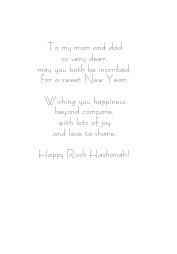 To my mom and dad
so very dear,
may you both be inscribed,
for a sweet New Year.
Wishing you happiness
beyond compare,
with lots of joy
and love to share.
Happy Rosh Hashanah!